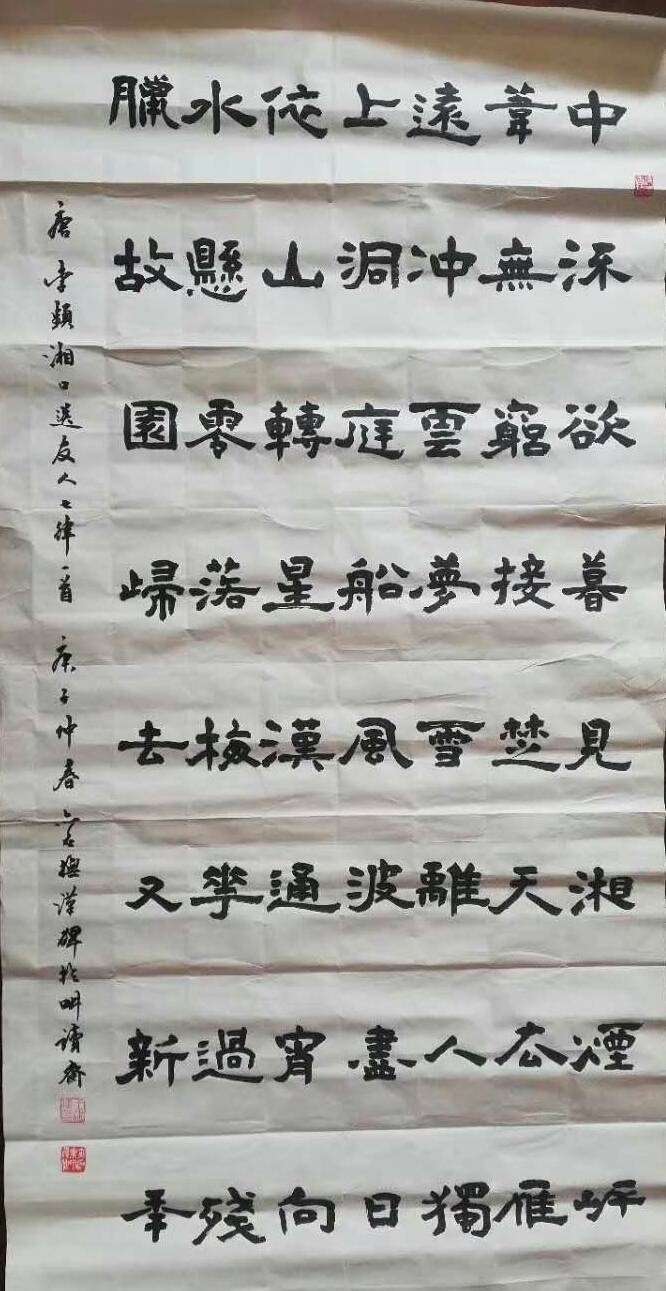 中流欲暮見湘煙岸
葦無窮接楚天去雁
遠冲雲夢雪離人獨
上洞庭船風波盡日
依山轉星漢通宵向
水懸零落梅華過殘
臘故園歸去又新年
唐李頻湘口送友人七律一首 庚子仲春 撫漢碑於畊讀齋